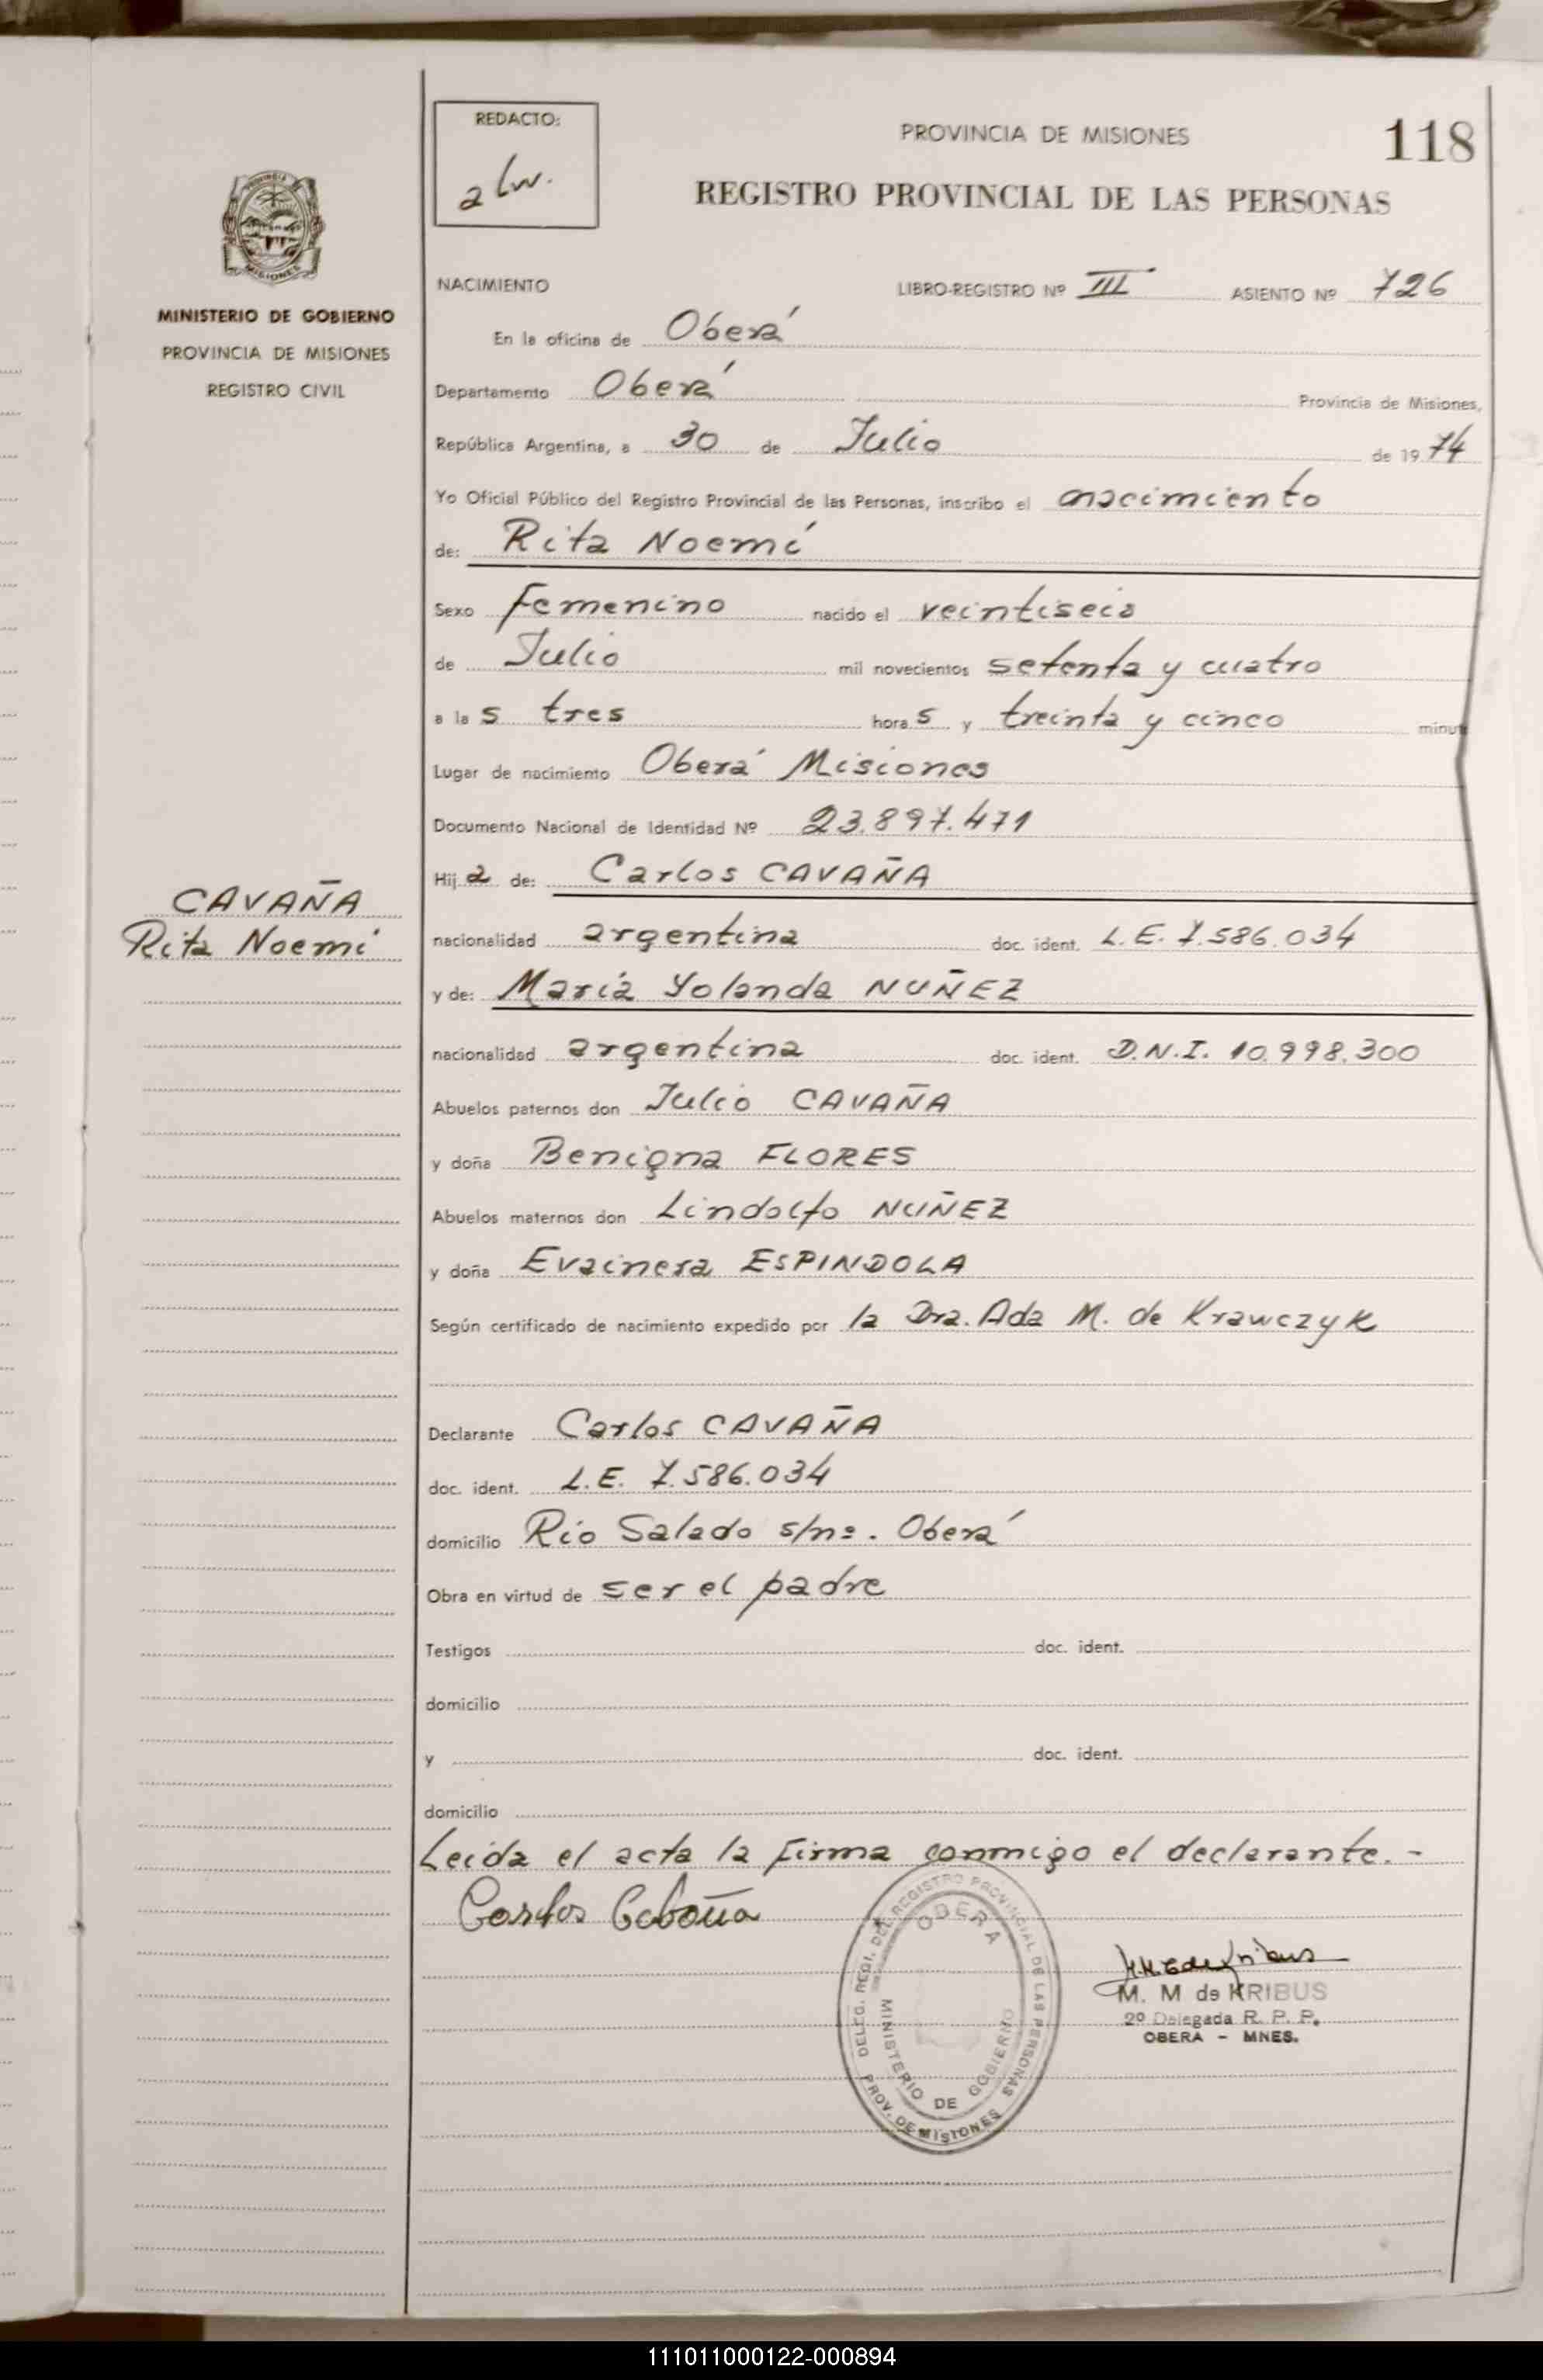 REDACTO:
PROVINCIA DE MISIONES
118
REGISTRO PROVINCIAL DE LAS PERSONAS
MINISTERIO DE GOBIERNO
PROVINCIA DE MISIONES
REGISTRO CIVIL
NACIMIENTO LIBRO-REGISTRO Nº III ASIENTO Nº 726
En la oficina de Oberá
Departamento Oberá Provincia de Misiones,
República Argentina, a 30 de Julio de 1974
Yo Oficial Público del Registro Provincial de las Personas, inscribo el nacimiento
de: Rita Noemí
Sexo Femenino nacido el veintiseis
de Julio mil novecientos setenta y cuatro
a las tres horas y treinta y cinco minut
Lugar de nacimiento Oberá Misiones
Documento Nacional de Identidad Nº 23.897.471
Hija de: Carlos CAVAÑA
CAVAÑA
Rita Noemí
nacionalidad argentina doc. ident. L.E. 7.586.034
y de: María Yolanda NUÑEZ
nacionalidad argentina doc. ident. D.N.I. 10.998.300
Abuelos paternos don Julio CAVAÑA
y doña Benigna FLORES
Abuelos maternos don Lindolfo NUÑEZ
y doña Evainera ESPINDOLA
Según certificado de nacimiento expedido por la Dra. Ada M. de Krawczyk
Declarante Carlos CAVAÑA
doc. ident. L.E. 7.586.034
domicilio Río Salado s/nº. Oberá
Obra en virtud de ser el padre
Testigos doc. ident.
domicilio
y doc. ident.
domicilio
Leida el acta la firma conmigo el declarante.-
Carlos Cabaña
DELEG. REGI. DEL REGISTRO PROVINCIAL DE LAS PERSONAS
OBERA
MINISTERIO DE GOBIERNO
PROV. DE MISIONES
M. M de KRIBUS
2º Delegada R. P. P.
OBERA - MNES.
111011000122-000894